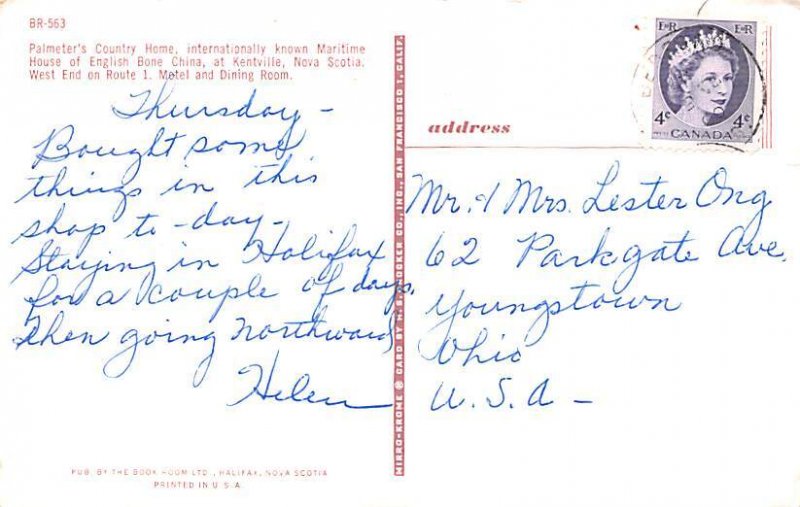 BR-563
Palmeter's Country Home, internationally known Maritime
House of English Bone China, at Kentville, Nova Scotia.
West End on Route 1. Motel and Dining Room.
Thursday -
Bought some
things in this
shop to-day-
Staying in Halifax
for a couple of days,
then going northward
Helen
PUB. BY THE BOOK ROOM LTD., HALIFAX, NOVA SCOTIA
PRINTED IN U.S.A.
MIRRO-KROME ® CARD BY H.S. CROCKER CO., INC., SAN FRANCISCO 1, CALIF.
E R E R
4c 4c
CANADA
address
Mr. & Mrs. Lester Ong
62 Parkgate Ave.
Youngstown
Ohio
U.S.A -